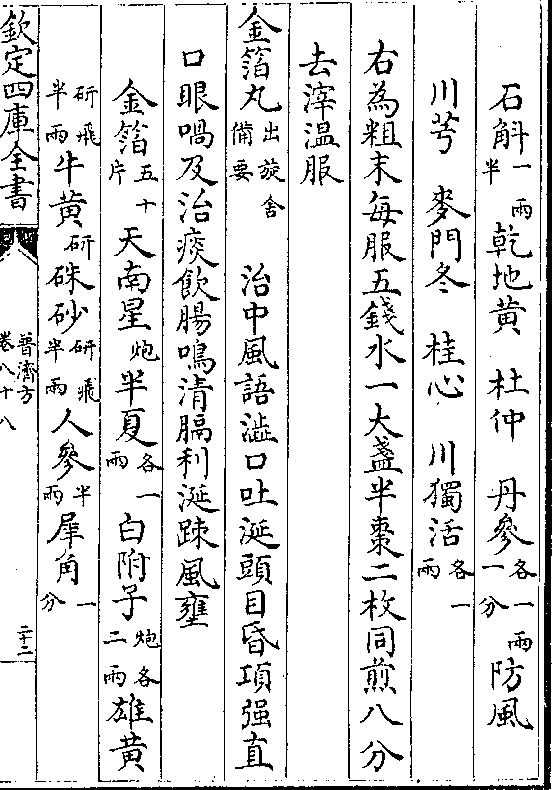 石斛一兩半乾地黄 杜仲 丹參各一兩一分防風
川芎 麥門冬 桂心 川獨活各一兩
右為粗末每服五錢水一大盞半棗二枚同煎八分
去滓温服
金箔丸出旋舍備要 治中風語澁口吐涎頭目昏項强直
口眼喎及治痰飲腸鳴清膈利涎踈風壅
金箔五十片天南星炮半夏各一兩白附子炮各二兩雄黄
研飛半兩牛黄研硃砂研飛半兩人參半兩犀角一分
欽定四庫全書
普濟方
卷八十八
二十二